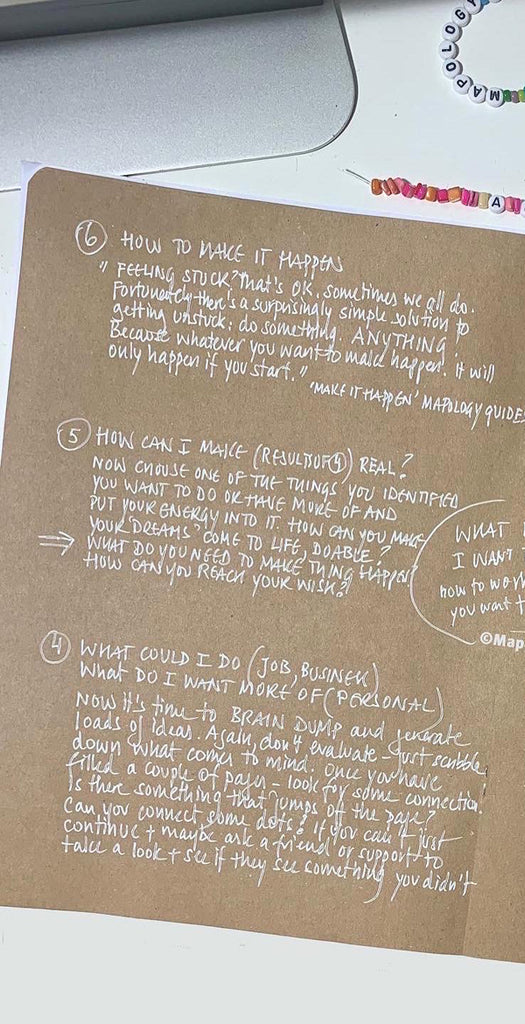 MAPOLOGY
A
⑥ HOW TO MAKE IT HAPPEN
"FEELING STUCK? That's OK. Sometimes we all do.
Fortunately there's a surprisingly simple solution to
getting unstuck: do something. ANYTHING!
Because whatever you want to make happen. it will
only happen if you start."
'MAKE IT HAPPEN' MAPOLOGY GUIDES
⑤ HOW CAN I MAKE (RESULTS OF ④) REAL?
NOW CHOOSE ONE OF THE THINGS YOU IDENTIFIED
YOU WANT TO DO OR HAVE MORE OF AND
PUT YOUR ENERGY INTO IT. HOW CAN YOU MAKE
YOUR "DREAMS" COME TO LIFE, DOABLE?
⇒ WHAT DO YOU NEED TO MAKE THING HAPPEN?
HOW CAN YOU REACH YOUR WISH?
WHAT
I WANT
how to work
you want t
©Map
④ WHAT COULD I DO (JOB, BUSINESS)
What DO I WANT MORE OF (PERSONAL)
NOW it's time to BRAIN DUMP and generate
loads of ideas. Again, don't evaluate - just scribble
down what comes to mind. Once you have
filled a couple of pages - look for some connection.
Is there something that jumps off the page?
Can you connect some dots? If you can't just
continue + maybe ask a friend or support to
take a look + see if they see something you didn't